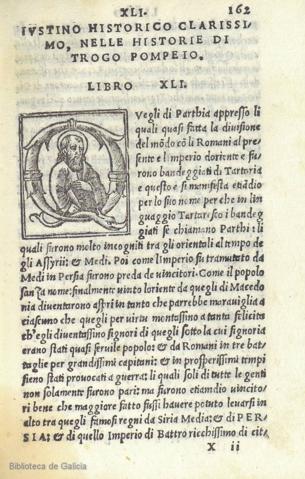 XLI. 162
IVSTINO HISTORICO CLARISSI
MO, NELLE HISTORIE DI
TROGO POMPEIO.
LIBRO XLI.
Q Vegli di Parthia appresso li
quali quasi fatta la diuisione
del mōdo cō li Romani al pre
sente e l imperio doriente e fu
rono bandeggiati di Tartaria
e questo e si manifesta etiādio
per lo suo nome per che in lin
guaggio Tartaresco i bandeg
giati se chiamano Parthi: i
quali furono molto incogniti tra gli orientali al tempo de
gli Assyrii: & Medi. Poi come l'imperio fu tramutato da
Medi in Persia furono preda de vincitori. Come il popolo
san za nome: finalmente vinto loriente da quegli di Macedo
nia diuentarono in tanto che parrebbe marauiglia a
ciascuno che quegli per virtu montossino a tanta felicita
ch'egli diuentassino signori di quegli sotto la cui signoria
erano stati quasi seruile popolo: & da Romani in tre bat
taglie per grandissimi capitani: & in prosperissimi tempi
sieno stati prouocati a guerra: li quali soli di tutte le genti
non solamente furono pari: ma furono etiamdio vincito/
ri bene che maggiore fatto fussi hauere potuto leuarsi in
alto tra quegli famosi regni da Siria Media: & di PER,
SIA: & di quello Imperio di Battro ricchissimo di cit,
X ii
Biblioteca de Galicia